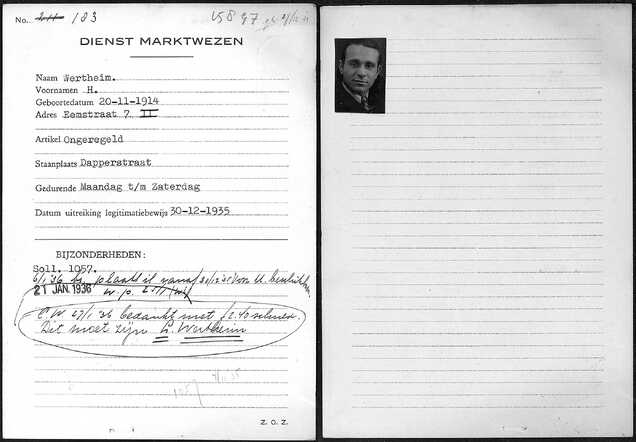 No. 211 183
DIENST MARKTWEZEN
Naam Wertheim.
Voornamen H.
Geboortedatum 20-11-1914
Adres Eemstraat 7 II
Artikel Ongeregeld
Staanplaats Dapperstraat
Gedurende Maandag t/m Zaterdag
Datum uitreiking legitimatiebewijs 30-12-1935
BIJZONDERHEDEN:
Soll. 1057.
6/1 '36 plaatst vanaf
21 JAN. 1936
C.W. 27/1 '36 bedankt met f 2.40 schuld.
Dit moet zijn L. Wertheim
1057
Z. O. Z.